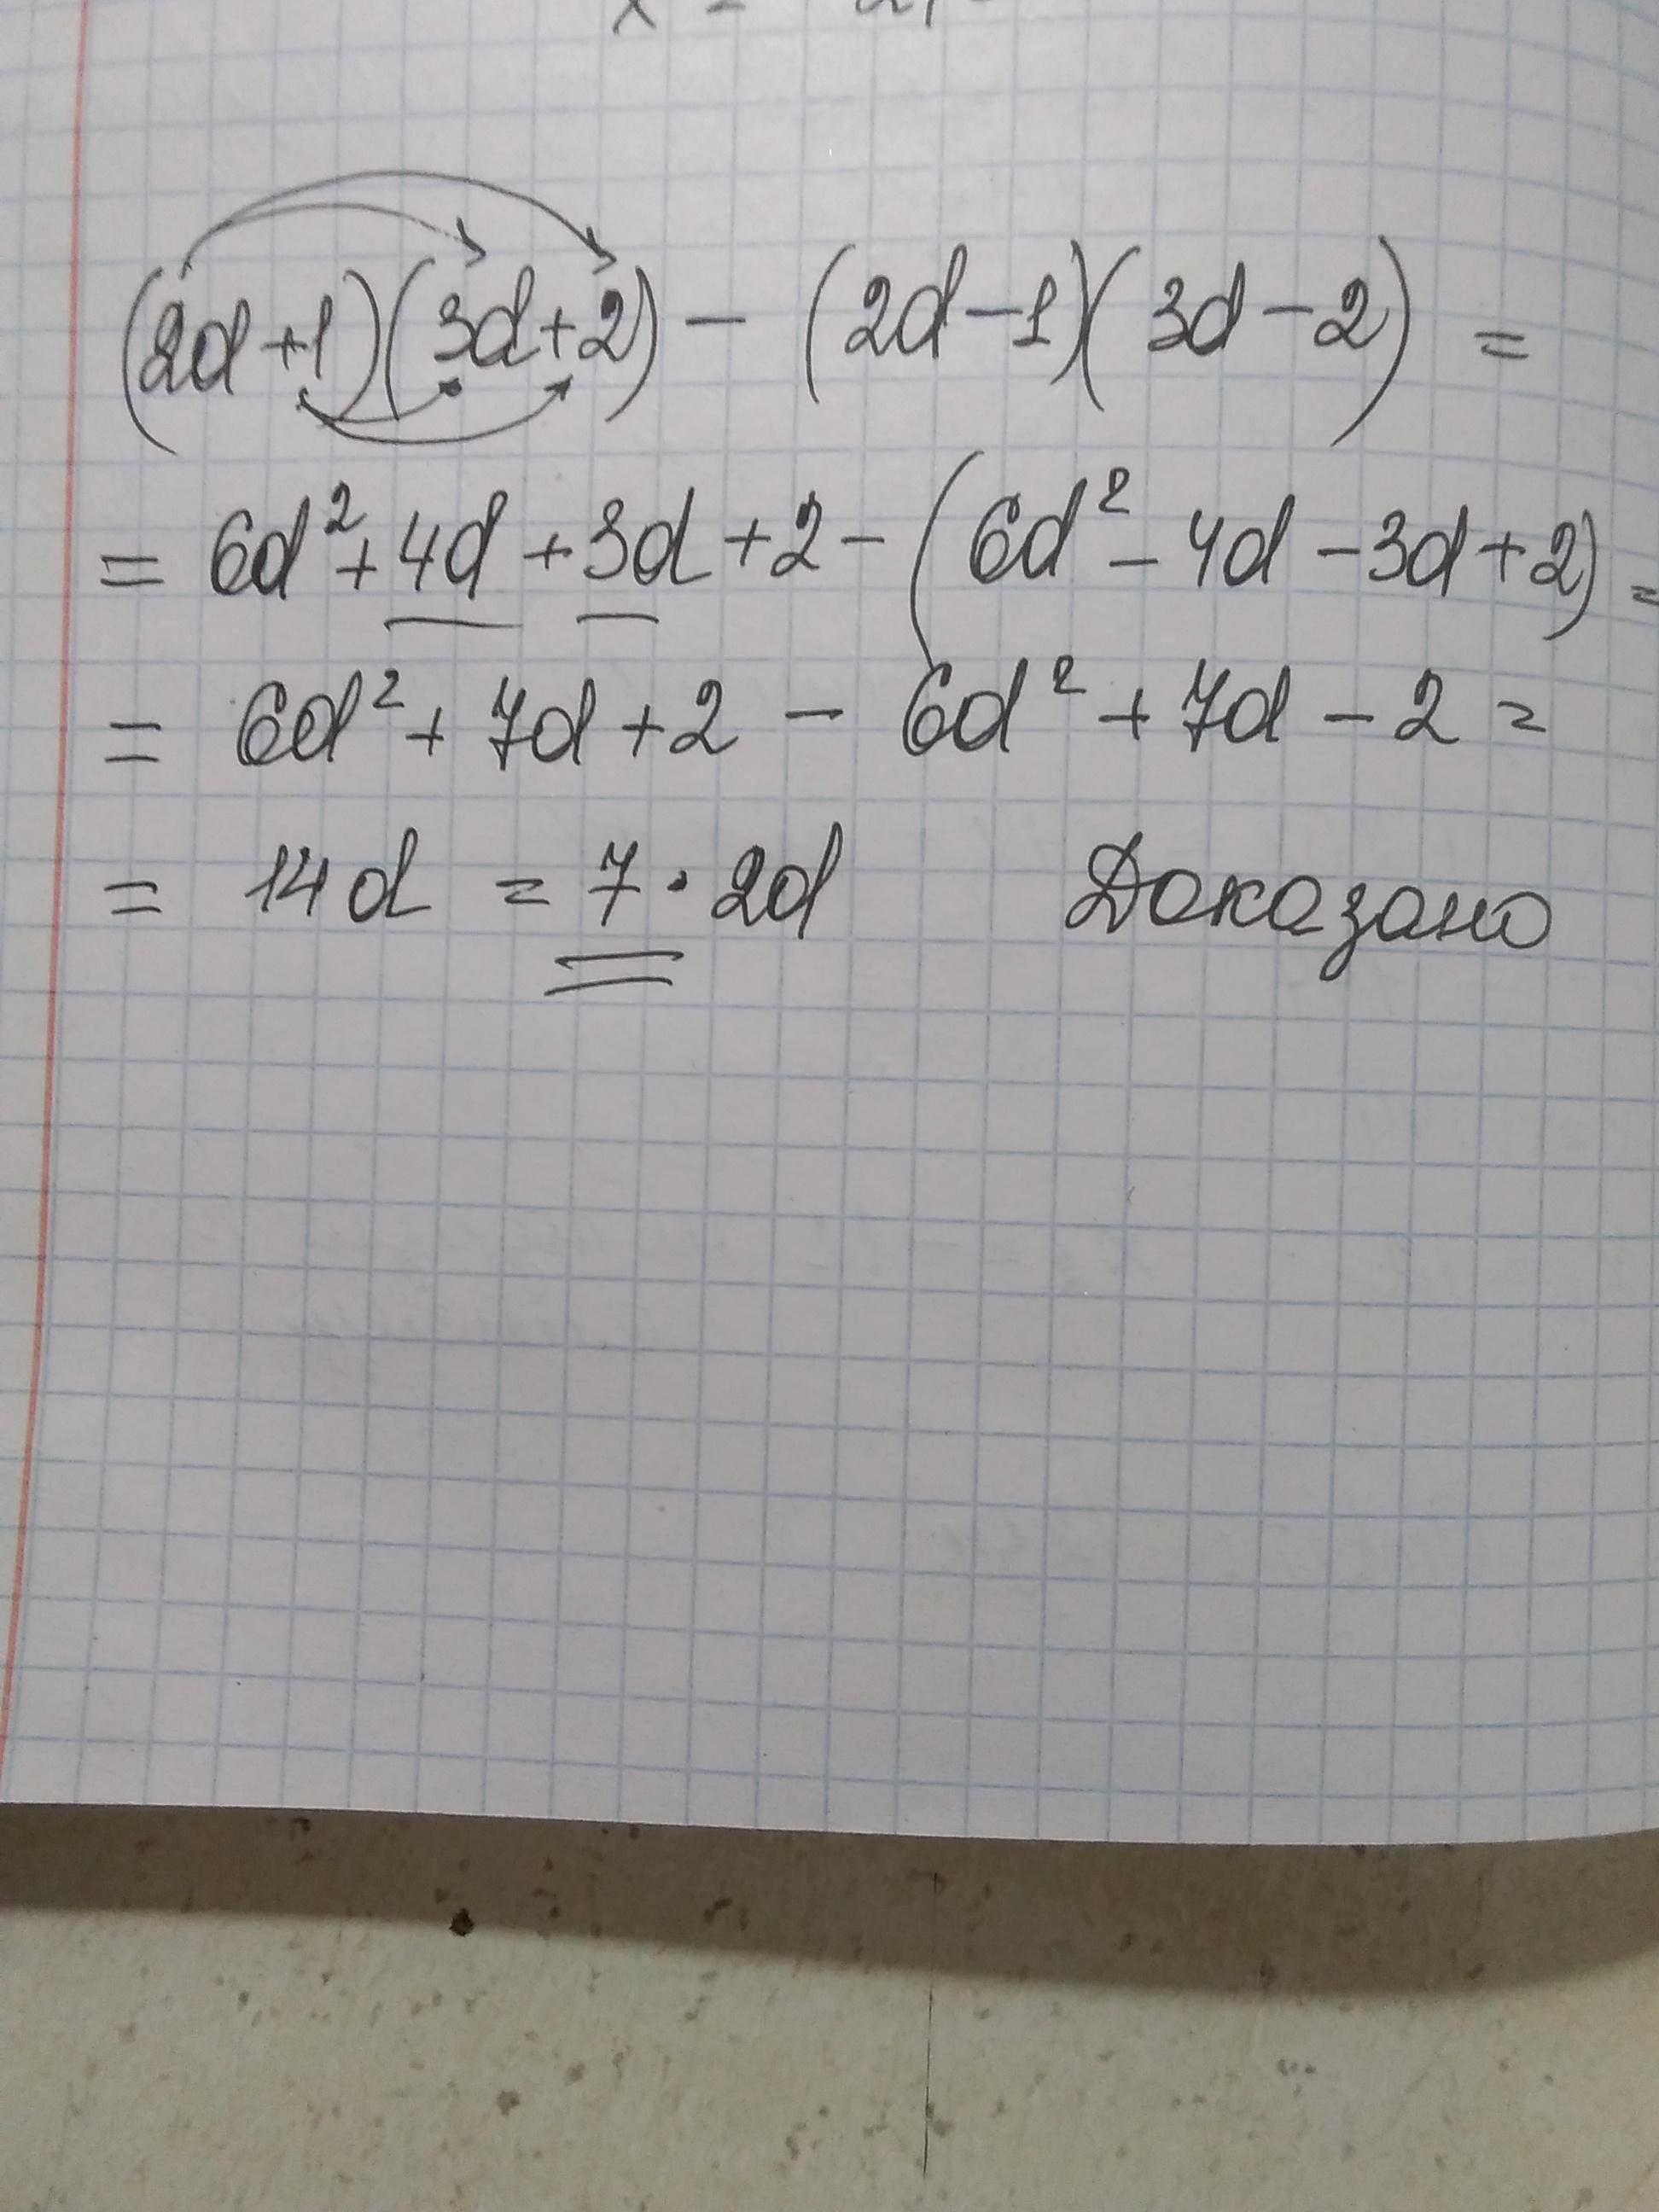 (2d+1)(3d+2) - (2d-1)(3d-2) =
= 6d² + 4d + 3d + 2 - (6d² - 4d - 3d + 2) =
= 6d² + 7d + 2 - 6d² + 7d - 2 =
= 14d = 7 · 2d Доказано